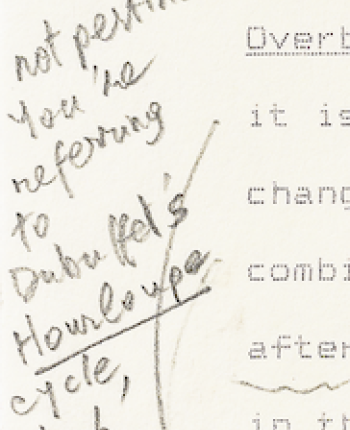 not pertin
You're
referring
to
Dubuffet's
Hourloupe
cycle,
Overb
it is
chang
combi
after
in th